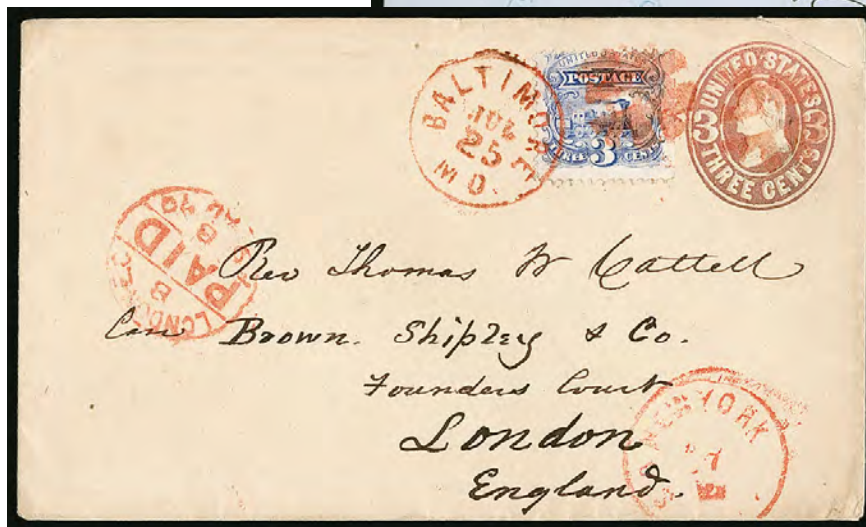 BALTIMORE
JUL
25
MD.
UNITED STATES
POSTAGE
THREE 3 CENTS
UNITED STATES
3 3
THREE CENTS
LONDON E.C
PAID
8
AU 70
Rev Thomas W Cattell
Care Brown. Shipley & Co.
Founders Court
London
England.
NEW YORK